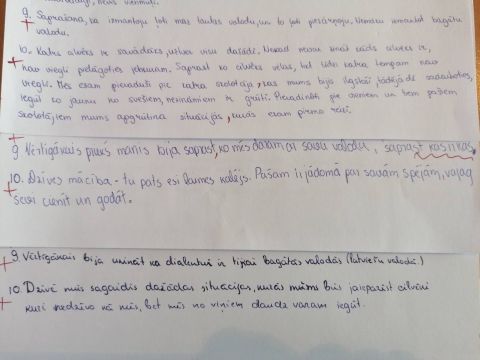 9. Saprašana, ka izmantoju ļoti maz tautas valodu, un to ļoti pesārņoju. Nemāku izmantot bagātu valodu.
10. Katrs cilvēks ir savādāks, uztver visu dažādi. Nekad nevar zināt kāds cilvēks ir,
nav viegli pielāgoties jebkuram. Saprast ko cilvēks vēlas, bet līdz katra tempam nav
viegli. Mēs esam pieraduši pie katra skolotāja, kas mums bija ilgstoši, tādējādi sadarboties,
iegūt ko jaunu no svešiem, nezināmiem ir grūti. Pieradināti pie skolēniem un tiem pašiem
skolotājiem mums apgrūtina situācijas, kurās esam pirmo reizi.
9. Vērtīgākais priekš manis bija saprast, ko mēs darām ar savu valodu, saprast kas ir kas.
10. Dzīves mācība - tu pats esi laimes kalējs. Pašam ir jādomā par savām spējām, vajag
sevi cienīt un godāt.
9. Vērtīgākais bija uzināt ka dialektus ir tikai bagātās valodās (latviešu valodā.)
10. Dzīvē mūs sagaidīs dažādas situācijas, kurās mums būs jāiepazīst cilvēki
kuri nedzīvo kā mēs, bet mēs no viņiem daudz varam iegūt.